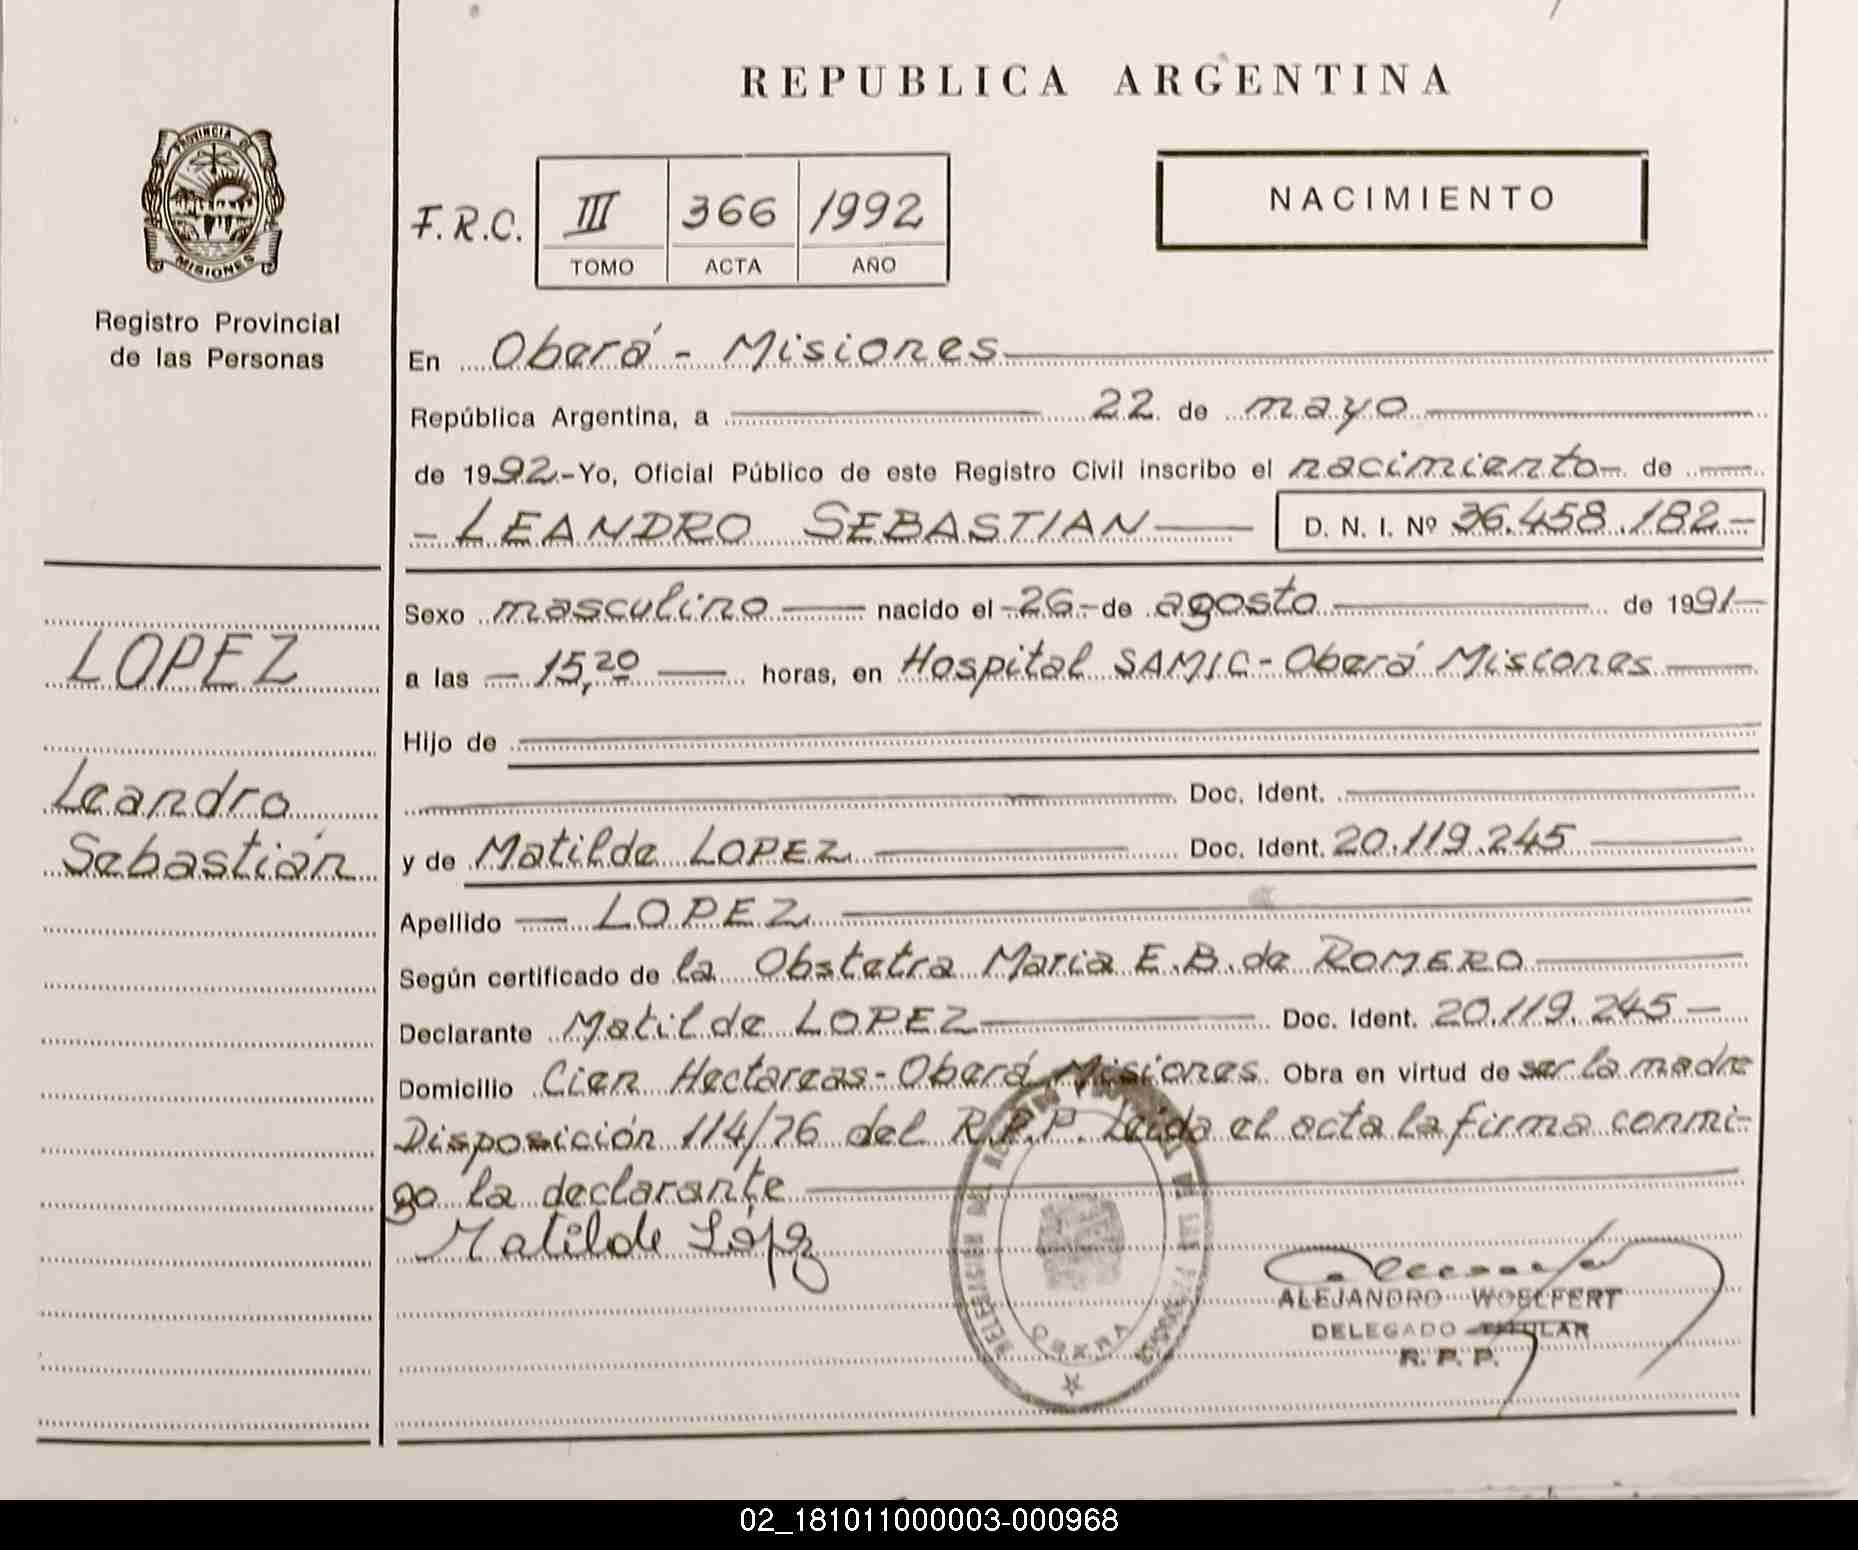 REPUBLICA ARGENTINA
PROVINCIA DE
MISIONES
Registro Provincial
de las Personas
F.R.C. III 366 1992
TOMO ACTA AÑO
NACIMIENTO
En Oberá - Misiones
República Argentina, a 22 de mayo
de 1992.- Yo, Oficial Público de este Registro Civil inscribo el nacimiento de
- LEANDRO SEBASTIAN D. N. I. Nº 36.458.182-
Sexo masculino nacido el -26- de agosto de 1991
a las 15,20 horas, en Hospital SAMIC - Oberá Misiones
Hijo de
Doc. Ident.
y de Matilde LOPEZ Doc. Ident. 20.119.245
Apellido LOPEZ
Según certificado de la Obstetra Maria E.B. de ROMERO
Declarante Matilde LOPEZ Doc. Ident. 20.119.245
Domicilio Cien Hectareas - Oberá Misiones Obra en virtud de ser la madre
Disposición 114/76 del R.P.P. Leida el acta la firma conmi-
go la declarante
Matilde López
LOPEZ
Leandro
Sebastián
OBERA
ALEJANDRO WOELFERT
DELEGADO TITULAR
R. P. P.
02_181011000003-000968